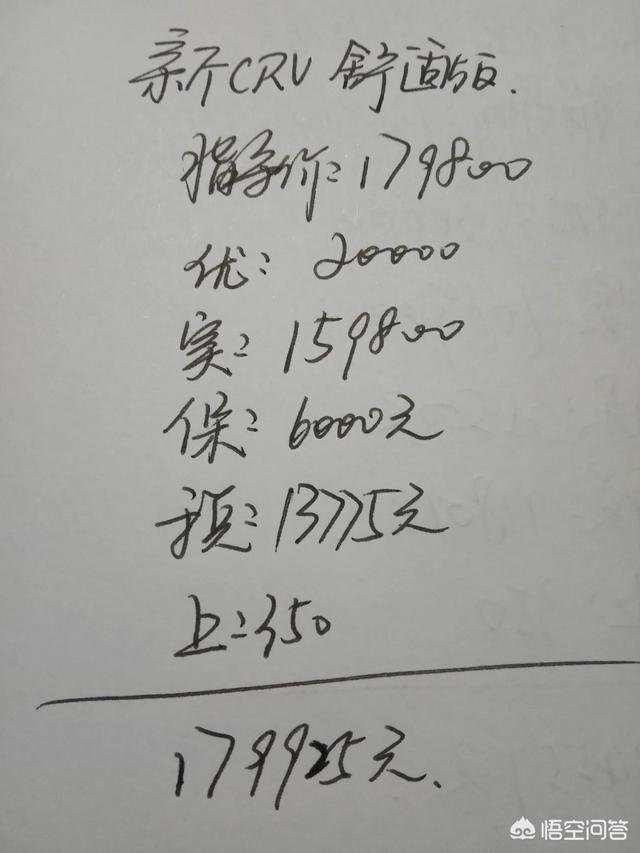 新CRV 舒适版.
指导价:179800
优:20000
实:159800
保:6000元
预:13775元
上:350
179925元.
悟空问答